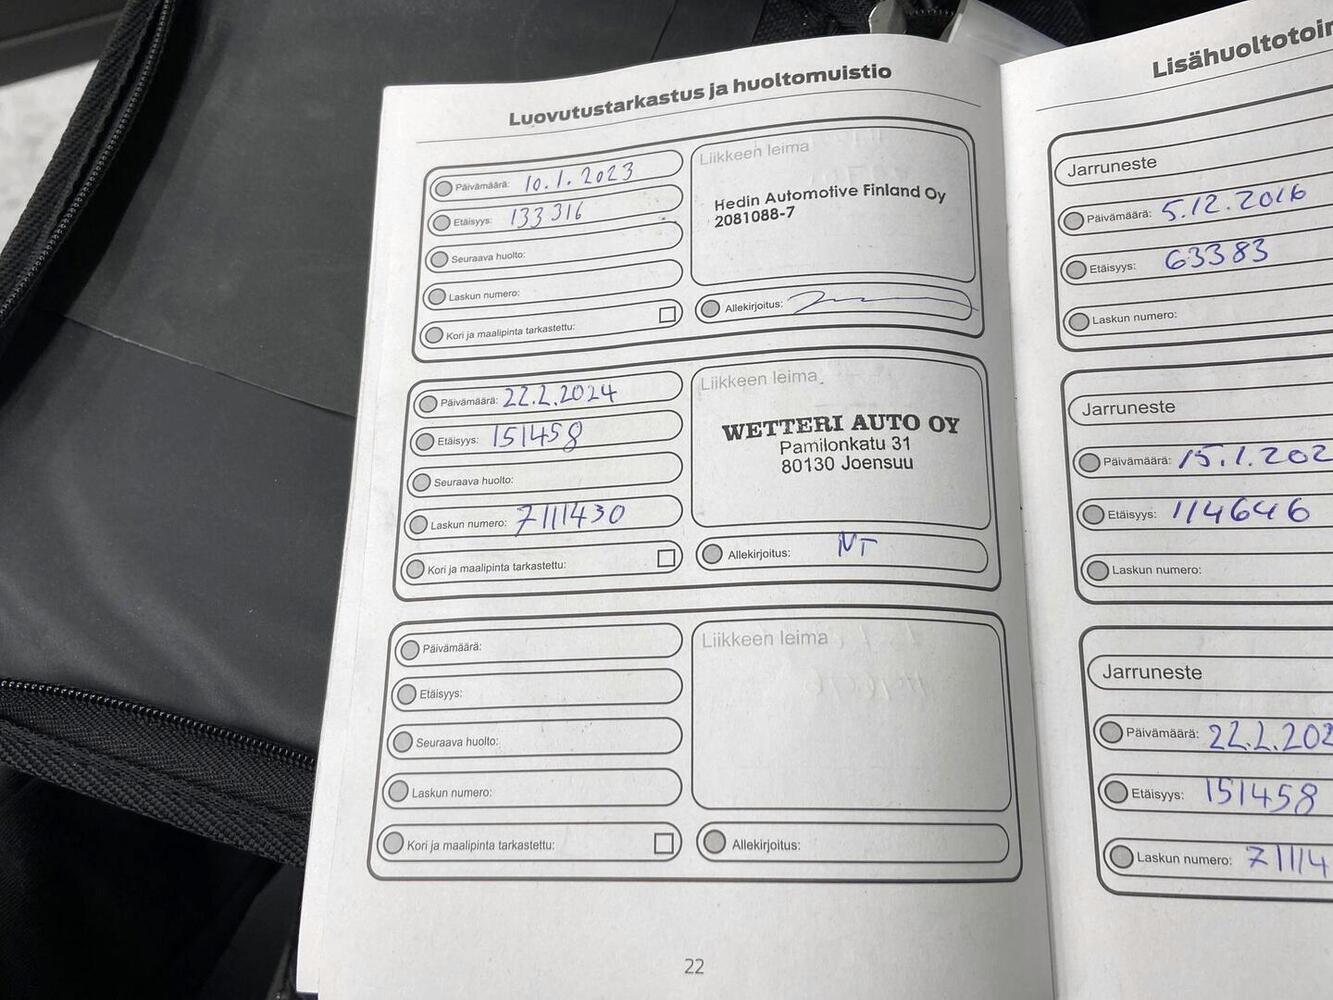 Luovutustarkastus ja huoltomuistio
Päivämäärä: 10.1.2023
Etäisyys: 133 316
Seuraava huolto:
Laskun numero:
Kori ja maalipinta tarkastettu:
Liikkeen leima
Hedin Automotive Finland Oy
2081088-7
Allekirjoitus:
Päivämäärä: 22.2.2024
Etäisyys: 151458
Seuraava huolto:
Laskun numero: 7111430
Kori ja maalipinta tarkastettu:
Liikkeen leima
WETTERI AUTO OY
Pamilonkatu 31
80130 Joensuu
Allekirjoitus: NT
Päivämäärä:
Etäisyys:
Seuraava huolto:
Laskun numero:
Kori ja maalipinta tarkastettu:
Liikkeen leima
Allekirjoitus:
22
Lisähuoltotoi
Jarruneste
Päivämäärä: 5.12.2016
Etäisyys: 63383
Laskun numero:
Jarruneste
Päivämäärä: 15.1.202
Etäisyys: 114646
Laskun numero:
Jarruneste
Päivämäärä: 22.2.202
Etäisyys: 151458
Laskun numero: 71114